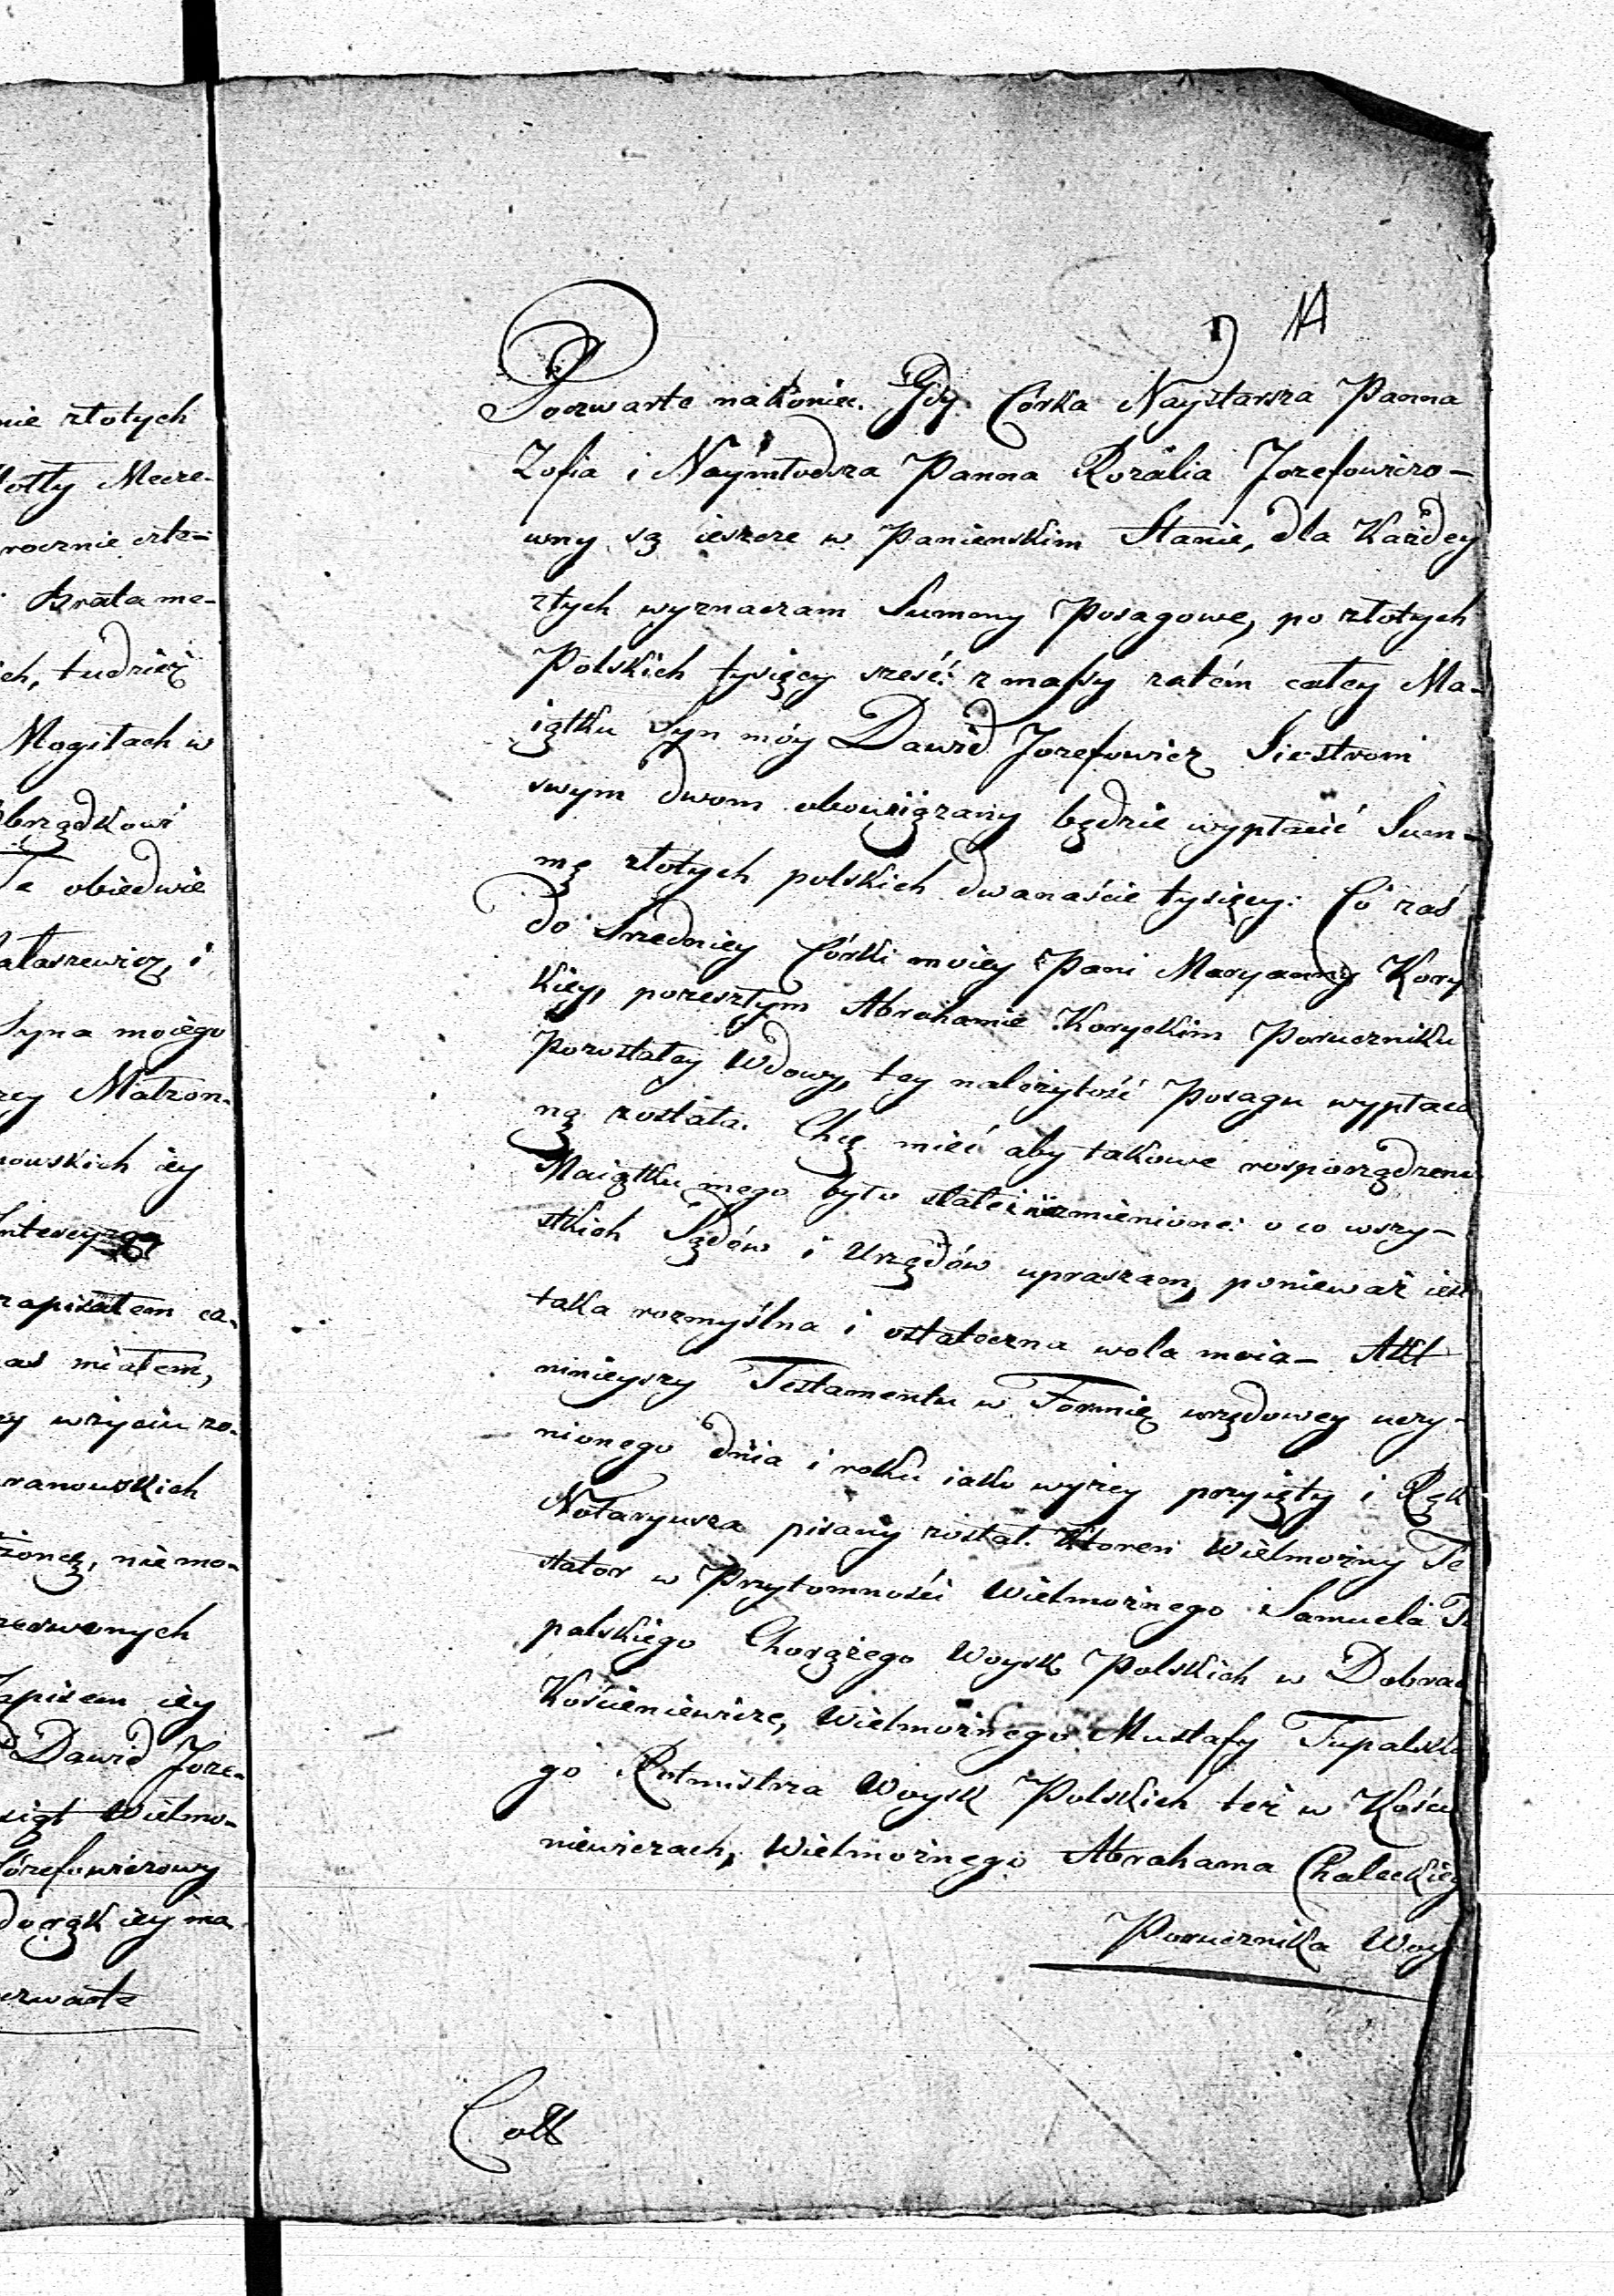 nie złotych
otty Mecze-
rocznie zło-
Brata me-
ch, tudzież
Mogiłach w
brządkowi
Te obiedwie
ałaszewicz, i
Syna moiego
rey Matzon-
nowskich iey
Intercyzą
zapisałem ca-
as miałem,
y wżyciu zo-
ranowskich
żoncę, nie mo-
rzeswonych
apisem iey
Dawid Joze-
siąt Wielmo-
Józefowiczowy
dorąk iey ma
czwarte
14
Poczwarte nakoniec. Gdy Córka Naystarsza Panna
Zofia i Naymłodsza Panna Rozalia Jozefowiczo-
wny są ieszcze w Panienskim Stanie, dla Każdey
ztych wyznaczam Summy Posagowe, po złotych
Polskich tysięcy sześć: z massy zatém całey Ma-
iątku Syn móy Dawid Jozefowicz Siostrom
swym dwom obowiązany będzie wypłacić Sum-
mę złotych polskich dwanaście tysięcy: Co zaś
do Srzedniey Córki moiey Pani Maryanny Kory
kiey, pozeszłym Abrahamie Koryckim Poruczniku
Pozostałey Wdowy, tey należytość Posagu wypłaco
ną została. Chcę mieć aby takowe rosporządzeni
Maiątku mego było stałe i niezmienione: o co wszy-
stkich Sądów i Urzędów upraszam, ponieważ iest
taka rozmyślna i ostateczna wola moia - Akt
ninieyszy Testamentu w Formię urzędowey uczy-
nionego dnia i roku iako wyżey przyięty i Ręk
Notaryusza pisany został. Ktoren Wielmożny Te
stator w Przytomności Wielmożnego Samuela Tu
palskiego Chorążego Woysk Polskich w Dobrac
Kościeniewicze, Wielmożnego Mustafy Tupalski
go Rotmistrza Woysk Polskich też w Kości
niewiczach, Wielmożnego Abrahama Chaleckieg
Porucznika Woy
Coll